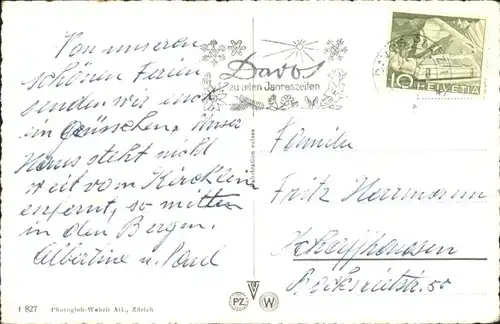 Von unseren
schönen Ferien
senden wir euch
ein Grüsschen. Unser
Haus steht nicht
weit vom Kirchlein
enfernt, so mitten
in den Bergen.
Albertine u.
Davos
zu allen Jahreszeiten
10 HELVETIA
Familie
Fritz Herrmann
Schaffhausen
50
f 827 Photoglob-Wehrli AG., Zürich
PZ W